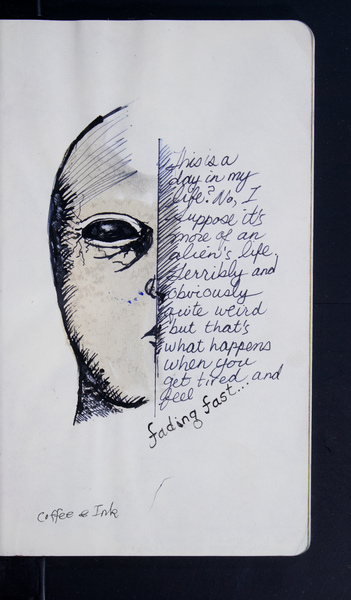 This is a
day in my
life? No, I
suppose it's
more of an
alien's life,
terribly and
obviously
quite weird
but that's
what happens
when you
get tired and
feel
fading fast...
Coffee & Ink